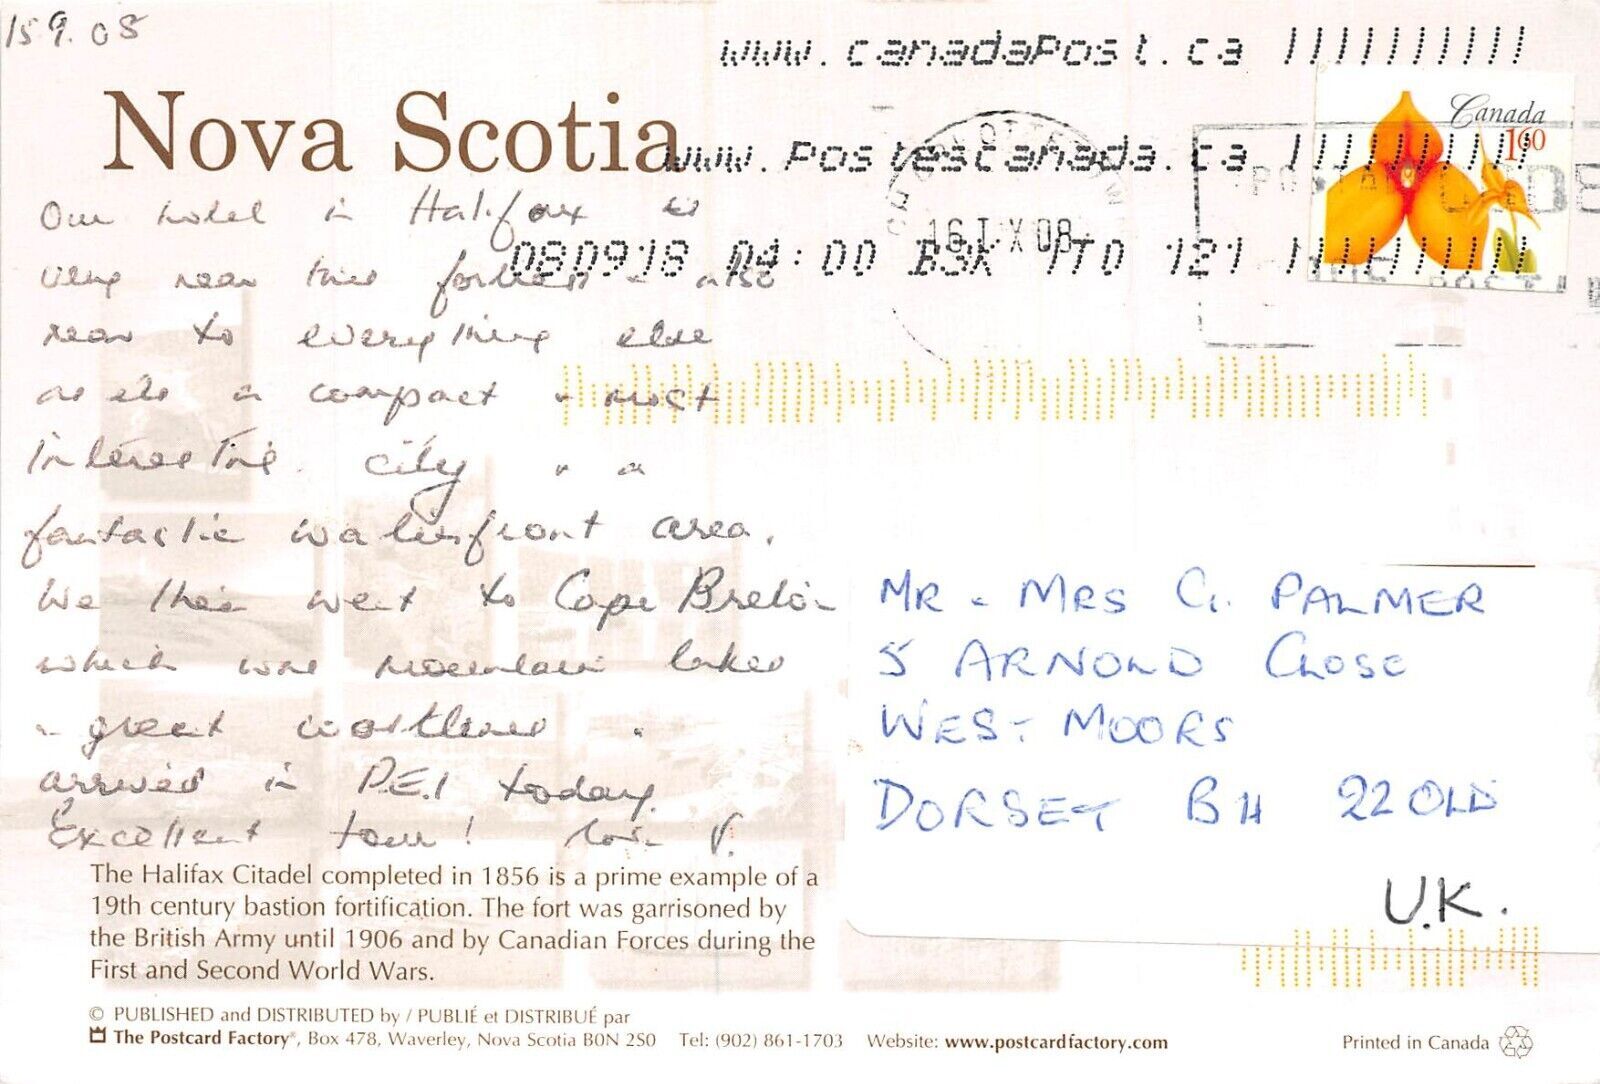 15 9. 08
www.canadapost.ca
Nova Scotia
Canada
1.60
www.postescanada.ca
16 IX 08
080918 04:00 B3K 1T0 121
Our hotel in Halifax is
very near this fortress - also
near to everything else
as its a compact & most
interesting city & a
fantastic waterfront area.
We then went to Cape Breton
which was mountain lakes
& great coastlines.
arrived in P.E.I today.
Excellent tour!
MR & MRS G. PALMER
5 ARNOLD CLOSE
WEST MOORS
DORSET BH 22 OLD
U.K.
The Halifax Citadel completed in 1856 is a prime example of a
19th century bastion fortification. The fort was garrisoned by
the British Army until 1906 and by Canadian Forces during the
First and Second World Wars.
© PUBLISHED and DISTRIBUTED by / PUBLIÉ et DISTRIBUÉ par
The Postcard Factory®, Box 478, Waverley, Nova Scotia B0N 2S0 Tel: (902) 861-1703 Website: www.postcardfactory.com
Printed in Canada